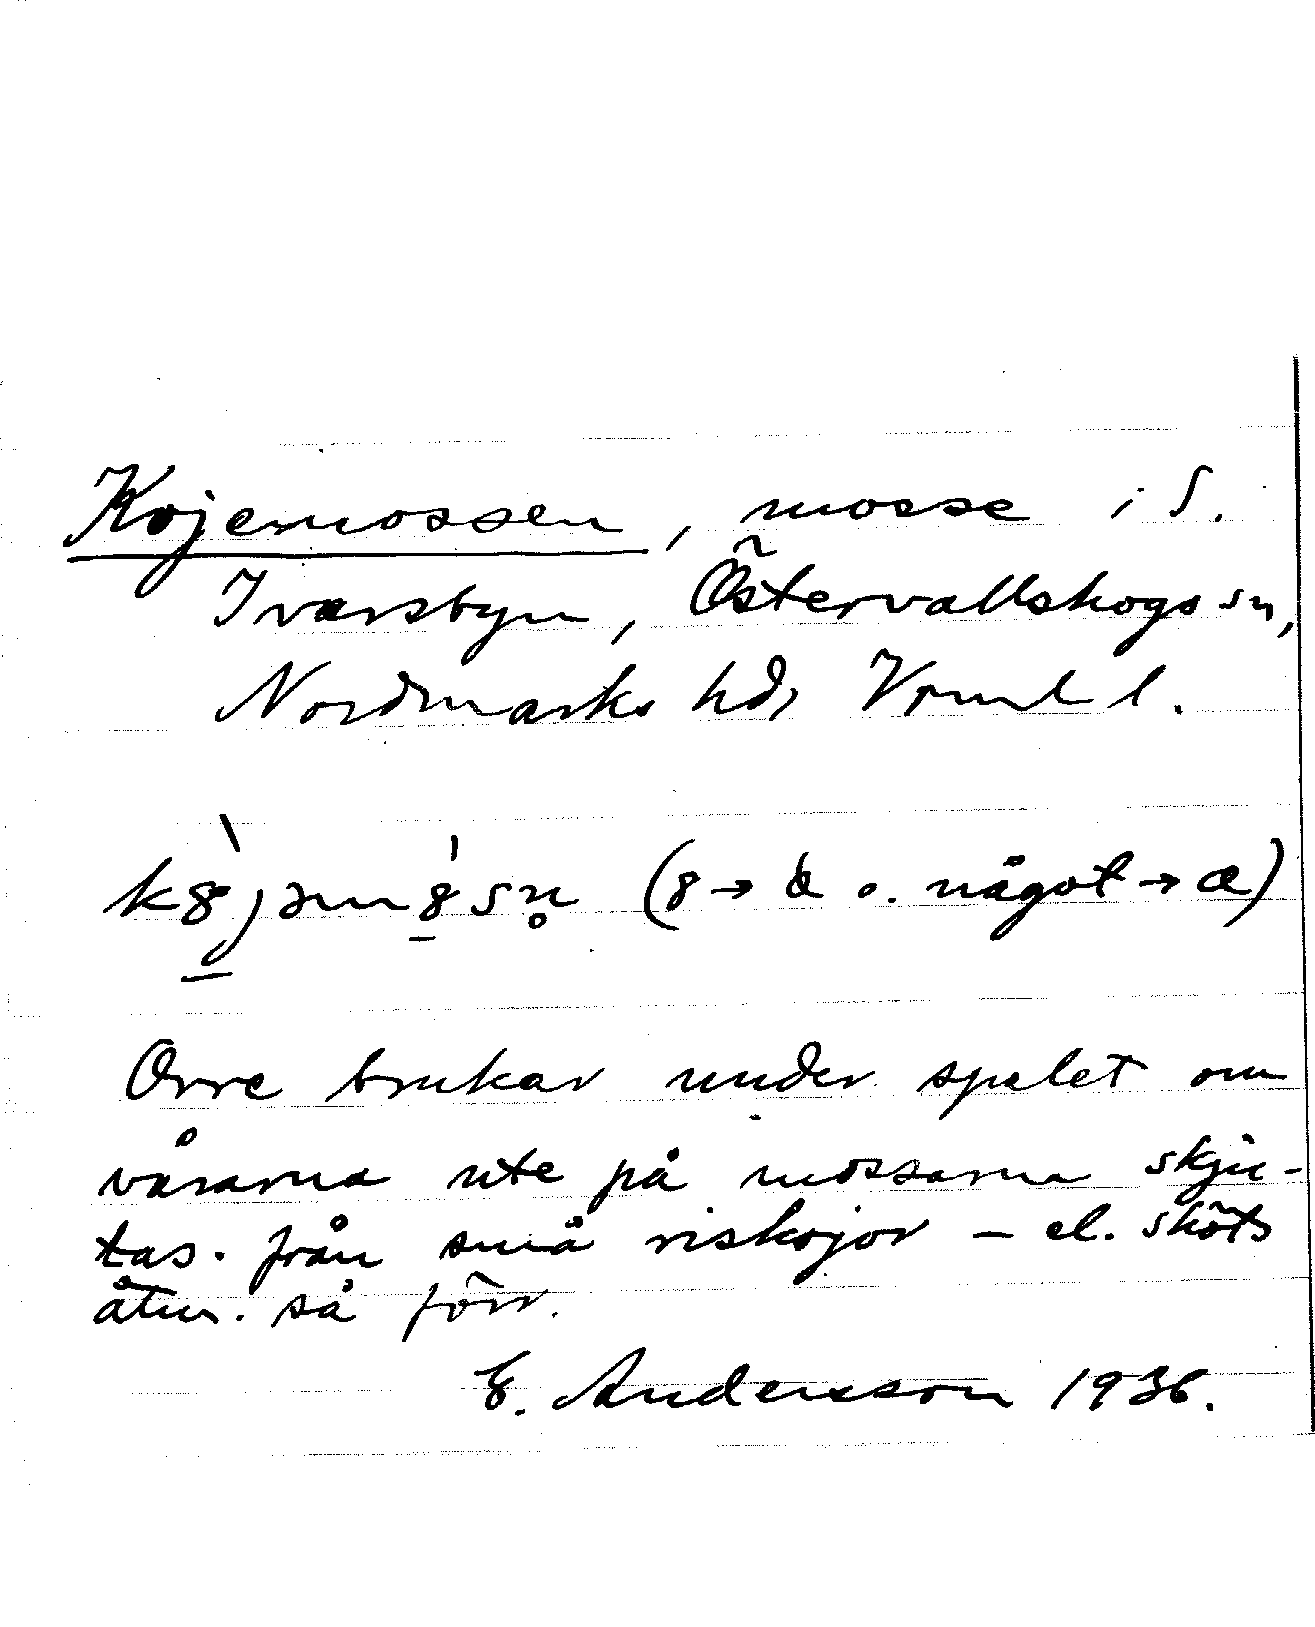 Kojemossen, mosse i S.
Ivarsbyn, Östervallskogs sn,
Nordmarks hd, Vrml l.
(8 → o. något → a)
Orre brukar under spelet om
vårarna ute på mossarna skju-
tas. från små riskojor – el. sköts
åtm. så förr.
E. Andersson 1936.